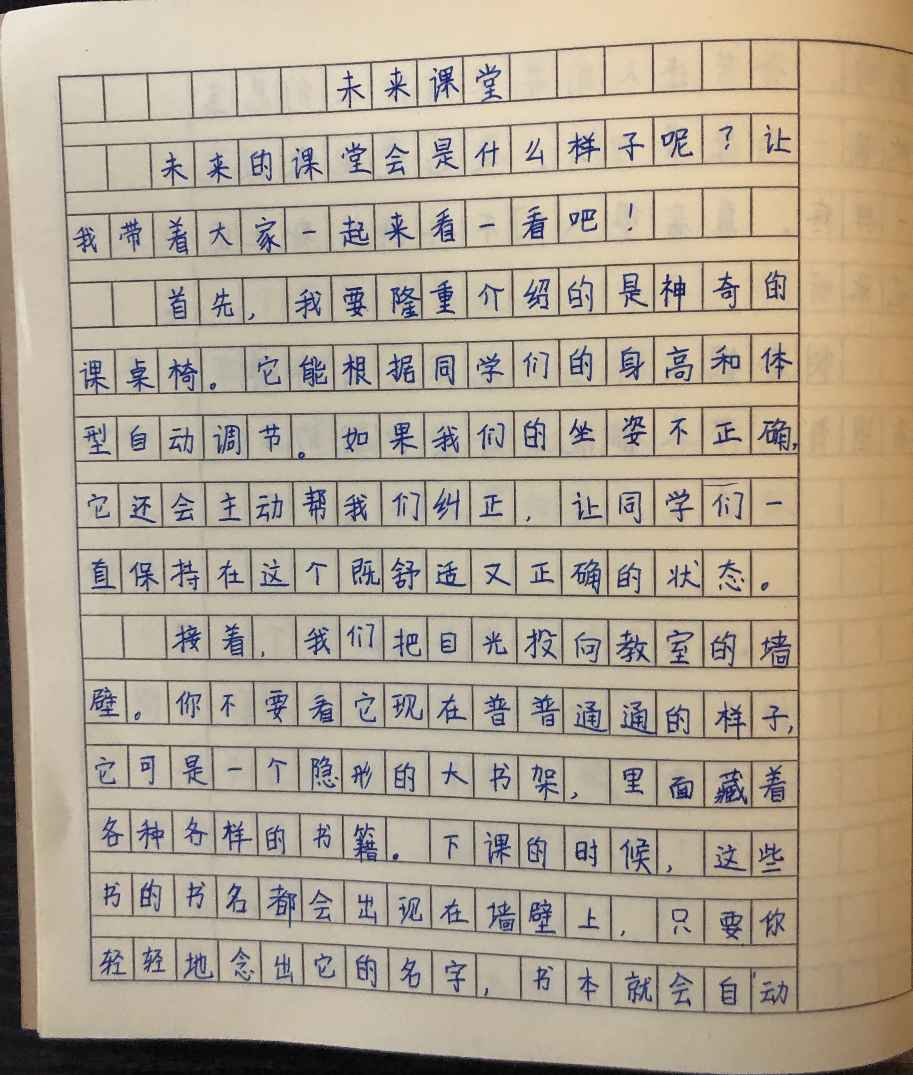 未来课堂
未来的课堂会是什么样子呢？让
我带着大家一起来看一看吧！
首先，我要隆重介绍的是神奇的
课桌椅。它能根据同学们的身高和体
型自动调节。如果我们的坐姿不正确，
它还会主动帮我们纠正，让同学们一
直保持在这个既舒适又正确的状态。
接着，我们把目光投向教室的墙
壁。你不要看它现在普普通通的样子，
它可是一个隐形的大书架，里面藏着
各种各样的书籍。下课的时候，这些
书的书名都会出现在墙壁上，只要你
轻轻地念出它的名字，书本就会自动